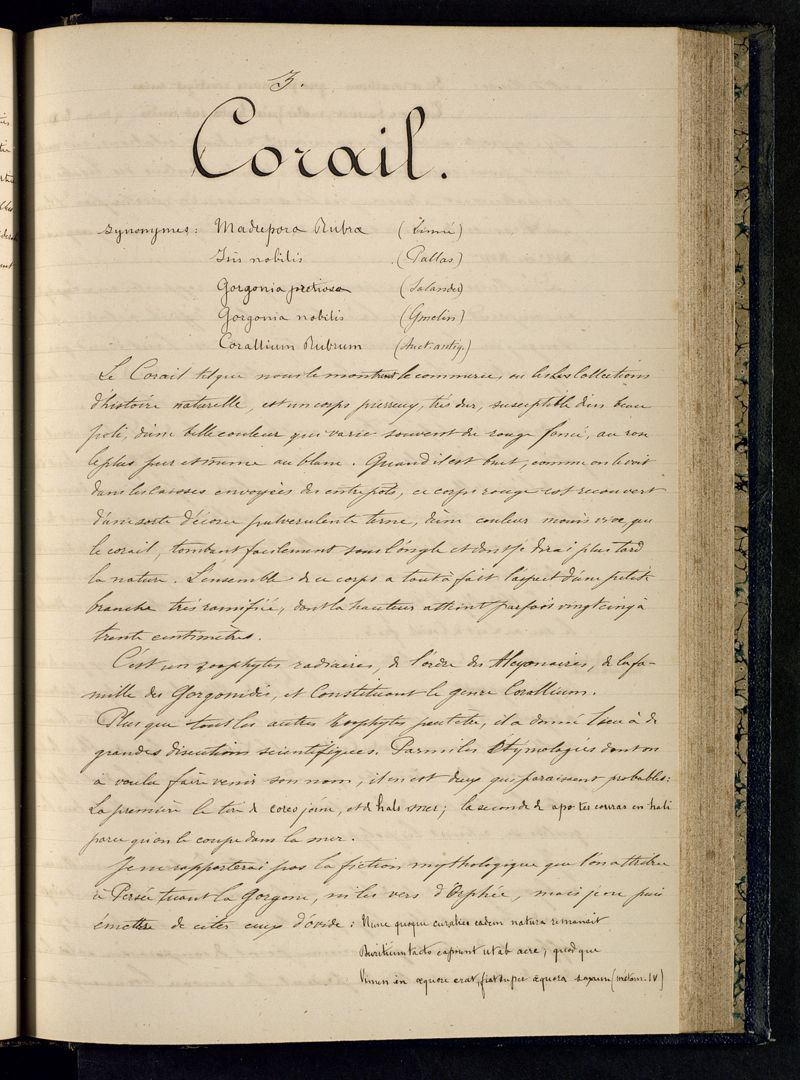 3.
Corail.
Synonymes: Madrepora Rubra (Linné)
Isis nobilis (Pallas)
Gorgonia pretiosa (Solander)
Gorgonia nobilis (Gmelin)
Corallium Rubrum (Auct. antiq.)
Le Corail tel que nous le montrent le commerce, ou les collections
d'histoire naturelle, est un corps pierreux, très dur, susceptible d'un beau
poli, d'une belle couleur qui varie souvent du rouge foncé, au rose
le plus pur et même au blanc. Quand il est brut, comme on le voit
dans les caisses envoyées des entrepôts, ce corps rouge est recouvert
d'une sorte d'écorce pulverulente terne, d'une couleur moins vive que
le corail, tombant facilement sous l'ongle et dont je dirai plus tard
la nature. L'ensemble de ce corps a tout à fait l'aspect d'une petite
branche très ramifiée, dont la hauteur atteint parfois vingt cinq à
trente centimètres.
C'est un zoophytes radiaires, de l'ordre des Alcyonaires, de la fa-
mille des Gorgonidés, et Constituant le genre Corallium.
Plus que tout les autres Zoophytes peut être, il a donné lieu à de
grandes discutions scientifiques. Parmi les Etymologies dont on
a voulu faire venir son nom, il en est deux qui paraissent probables:
La première le tire de coreo j'orne, et de hals mer; la seconde de apo tes couras en hali
parce qu'on le coupe dans la mer.
Je ne rapporterai pas la fiction mythologique que l'on attribue
à Persée tuant la Gorgone, ni les vers d'Orphée, mais je ne puis
émettre de citer ceux d'ovide: Nunc quoque curaliis eadem natura remansit
Duritiam tacto capiant ut ab aere, quod que
Vimen in æquore erat, fiat super æquora saxum (métam. IV)